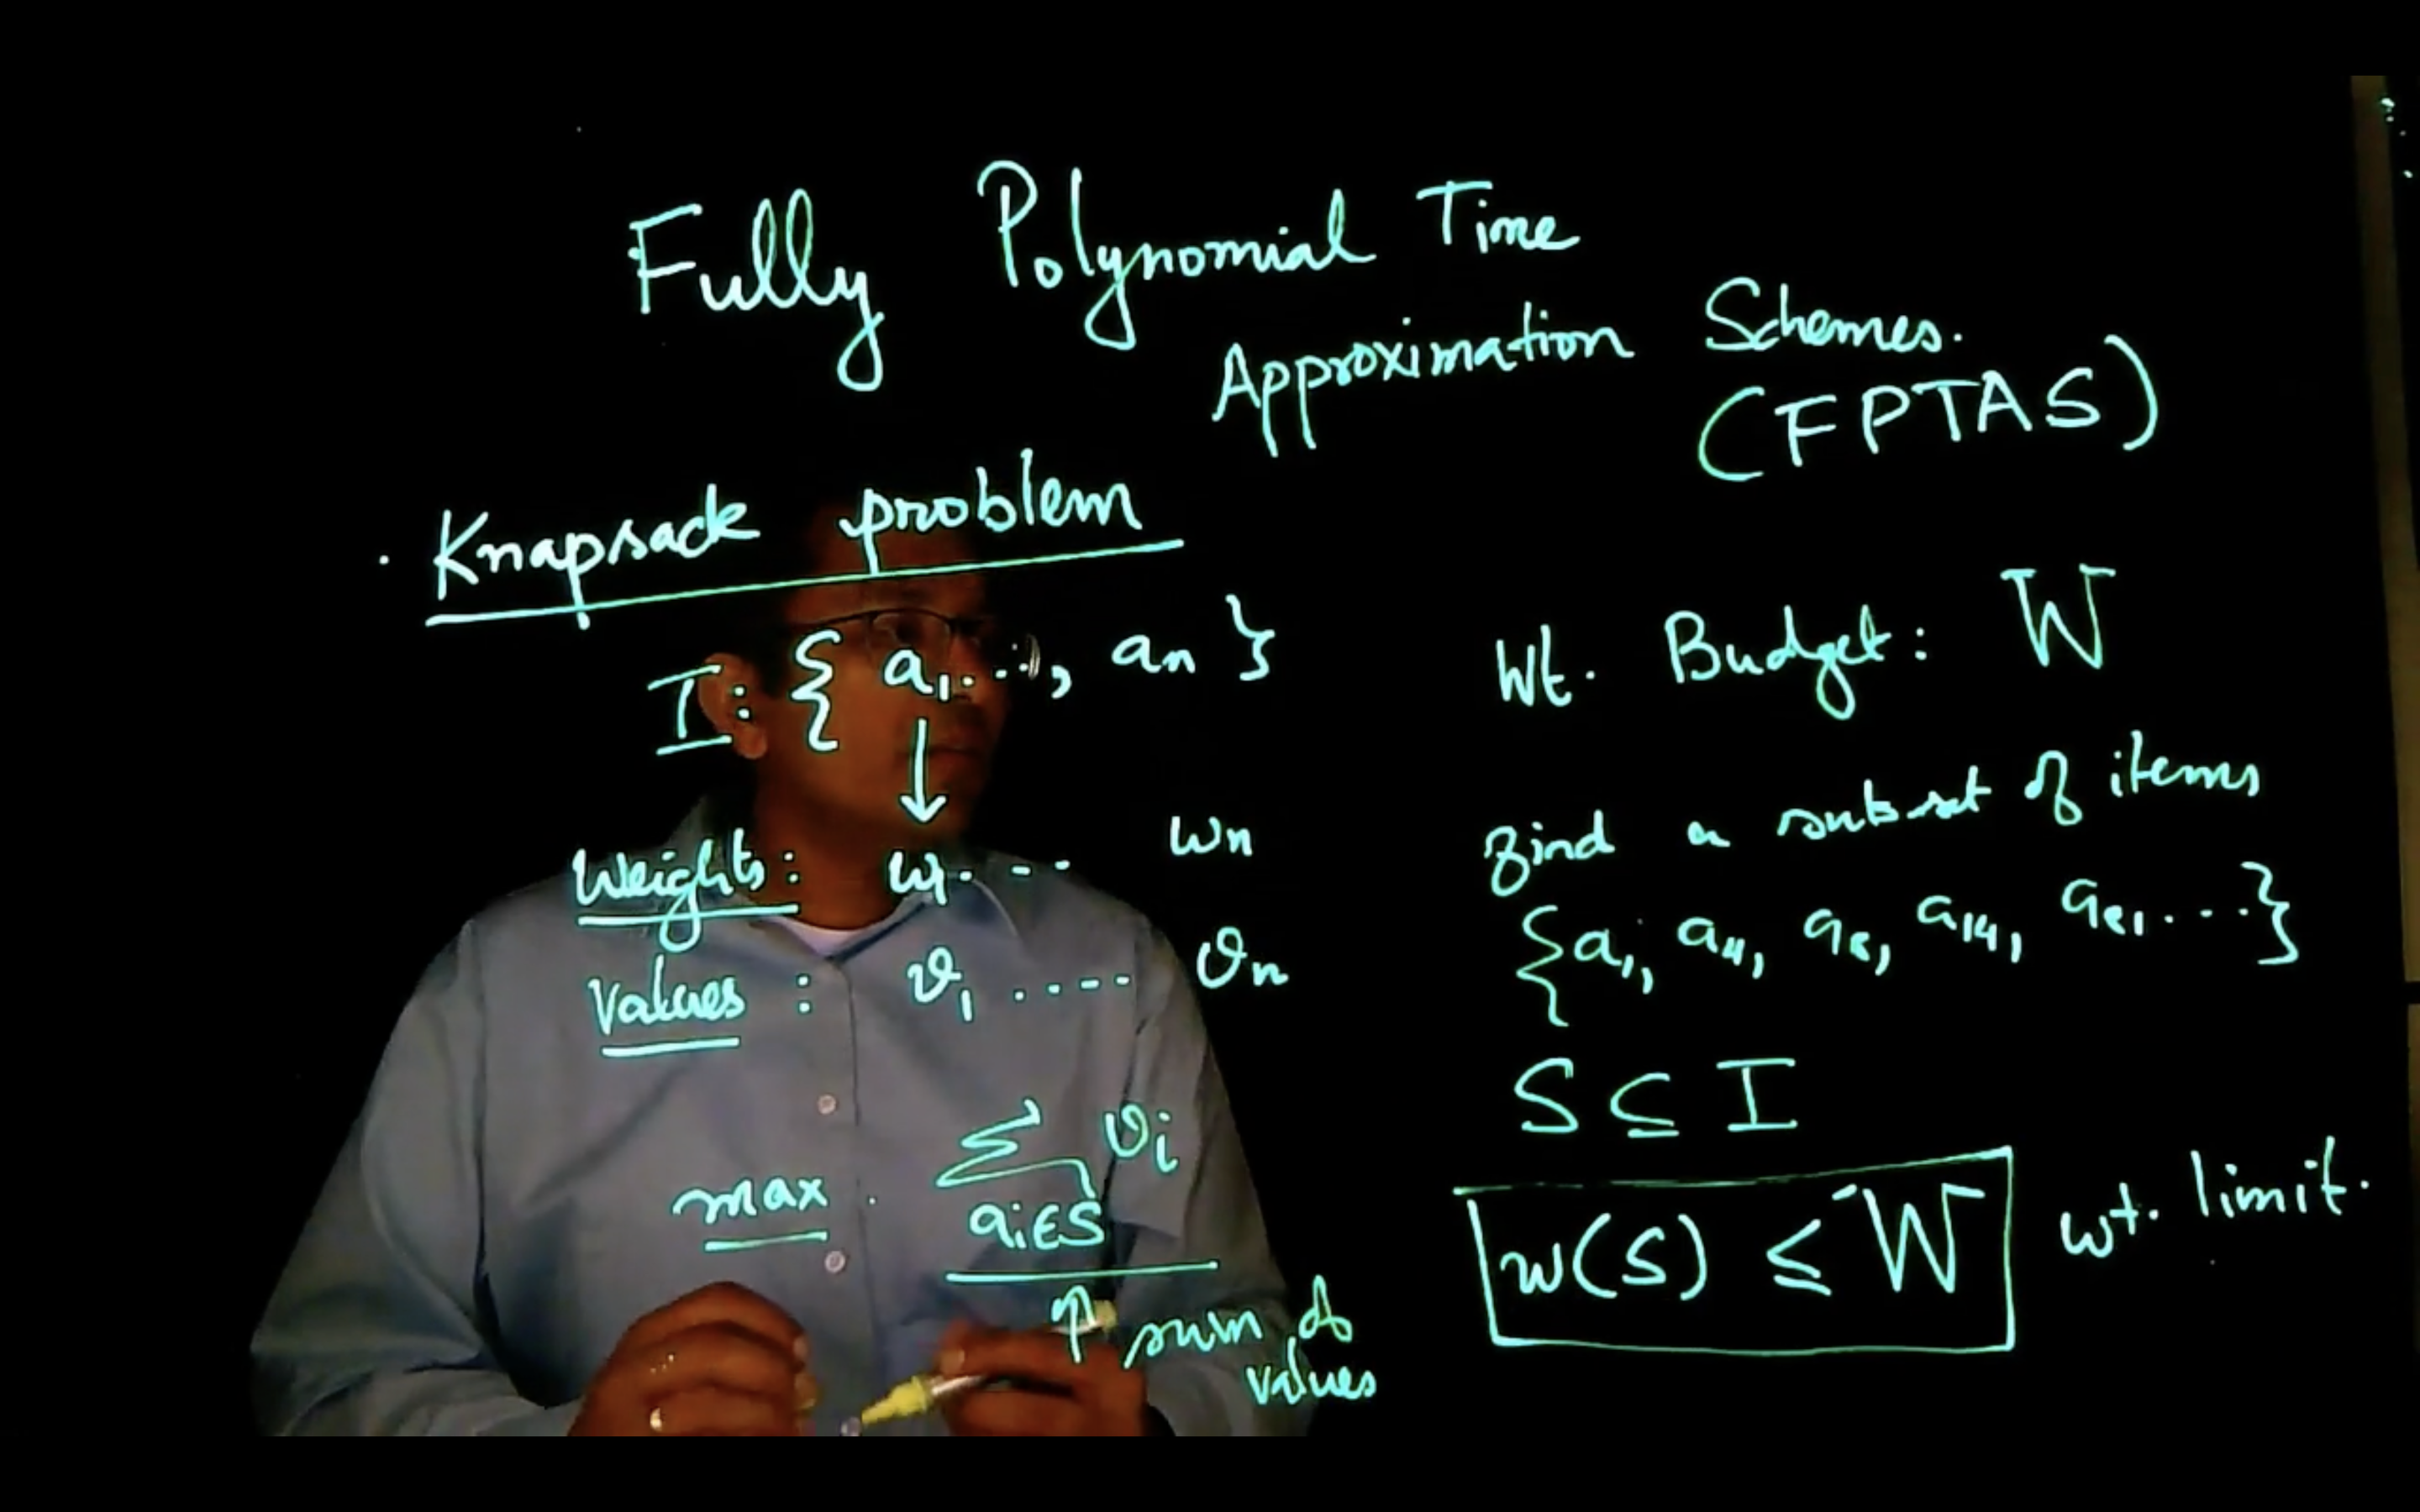 Fully Polynomial Time
Approximation Schemes.
(FPTAS)
· Knapsack problem
I: { a1..., an }
Weights: w1. -- wn
Values : v1 .... vn
max . Σ vi
ai∈S
↑ sum of
values
Wt. Budget: W
find a subset of items
{a1, a4, a8, a14, ...}
S ⊆ I
w(S) ≤ W wt. limit.